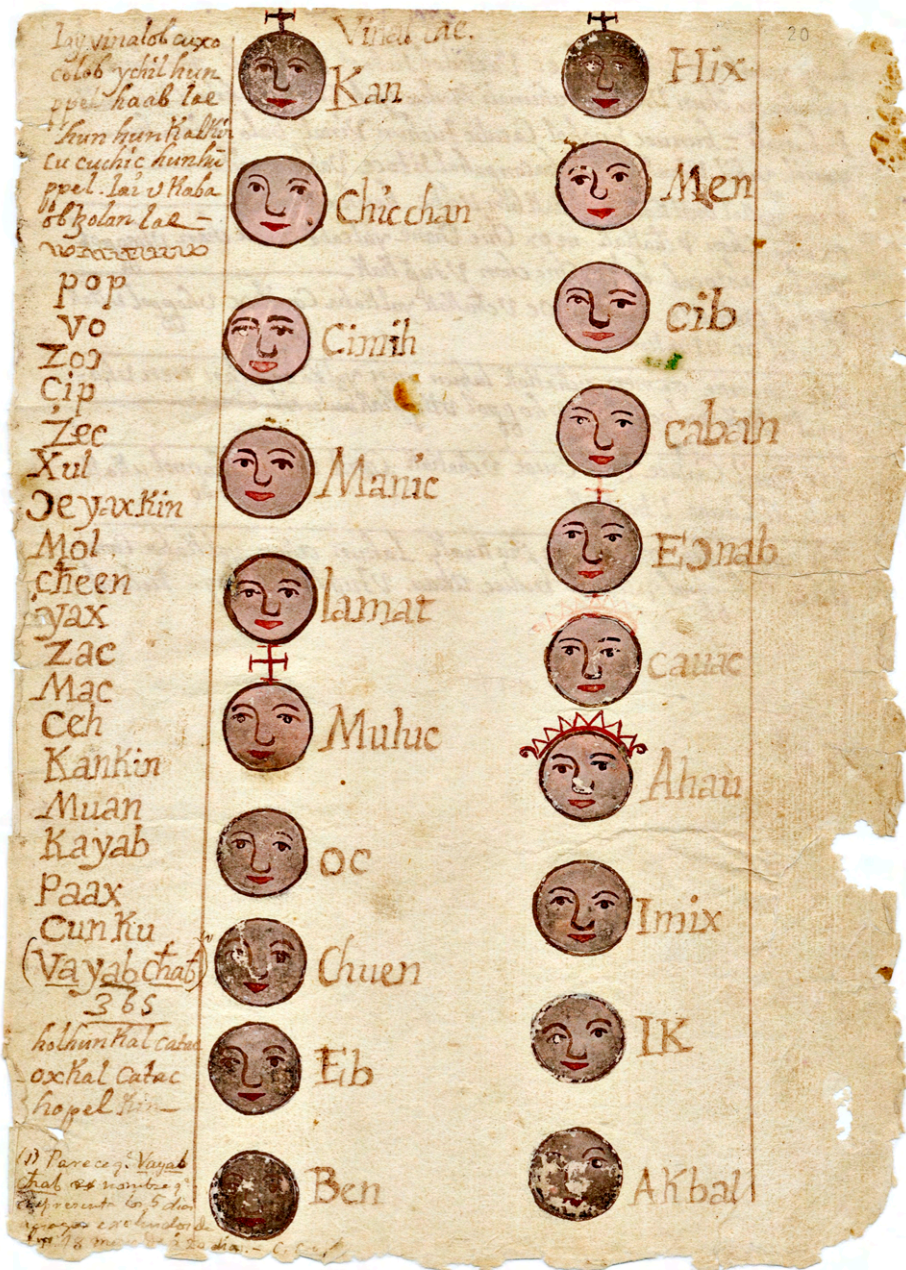 lay vinalob cuxo
colob ychil hun
ppel haab lae
hun hunkalkin
cu cuchic hunhu
ppel. lai v kaba
ob tzolan lae —
pop
vo
Zoɔ
Cip
Zec
Xul
Ɔeyaxkin
Mol
cħeen
yax
Zac
Mac
Ceh
KanKin
Muan
Kayab
Paax
CumKu
(Vayab cħab)
365
holhunkal catac
oxkal catac
hopel kin —
(1) Parece q.e Vayab
cħab es nombre q.e
representa los 5 dias
de 20 dias. —
Vinal lae.
Kan
Chicchan
Cimih
Manic
lamat
Muluc
oc
Chuen
Eb
Ben
20
Hix
Men
cib
caban
Eɔnab
cauac
Ahau
Imix
IK
AKbal